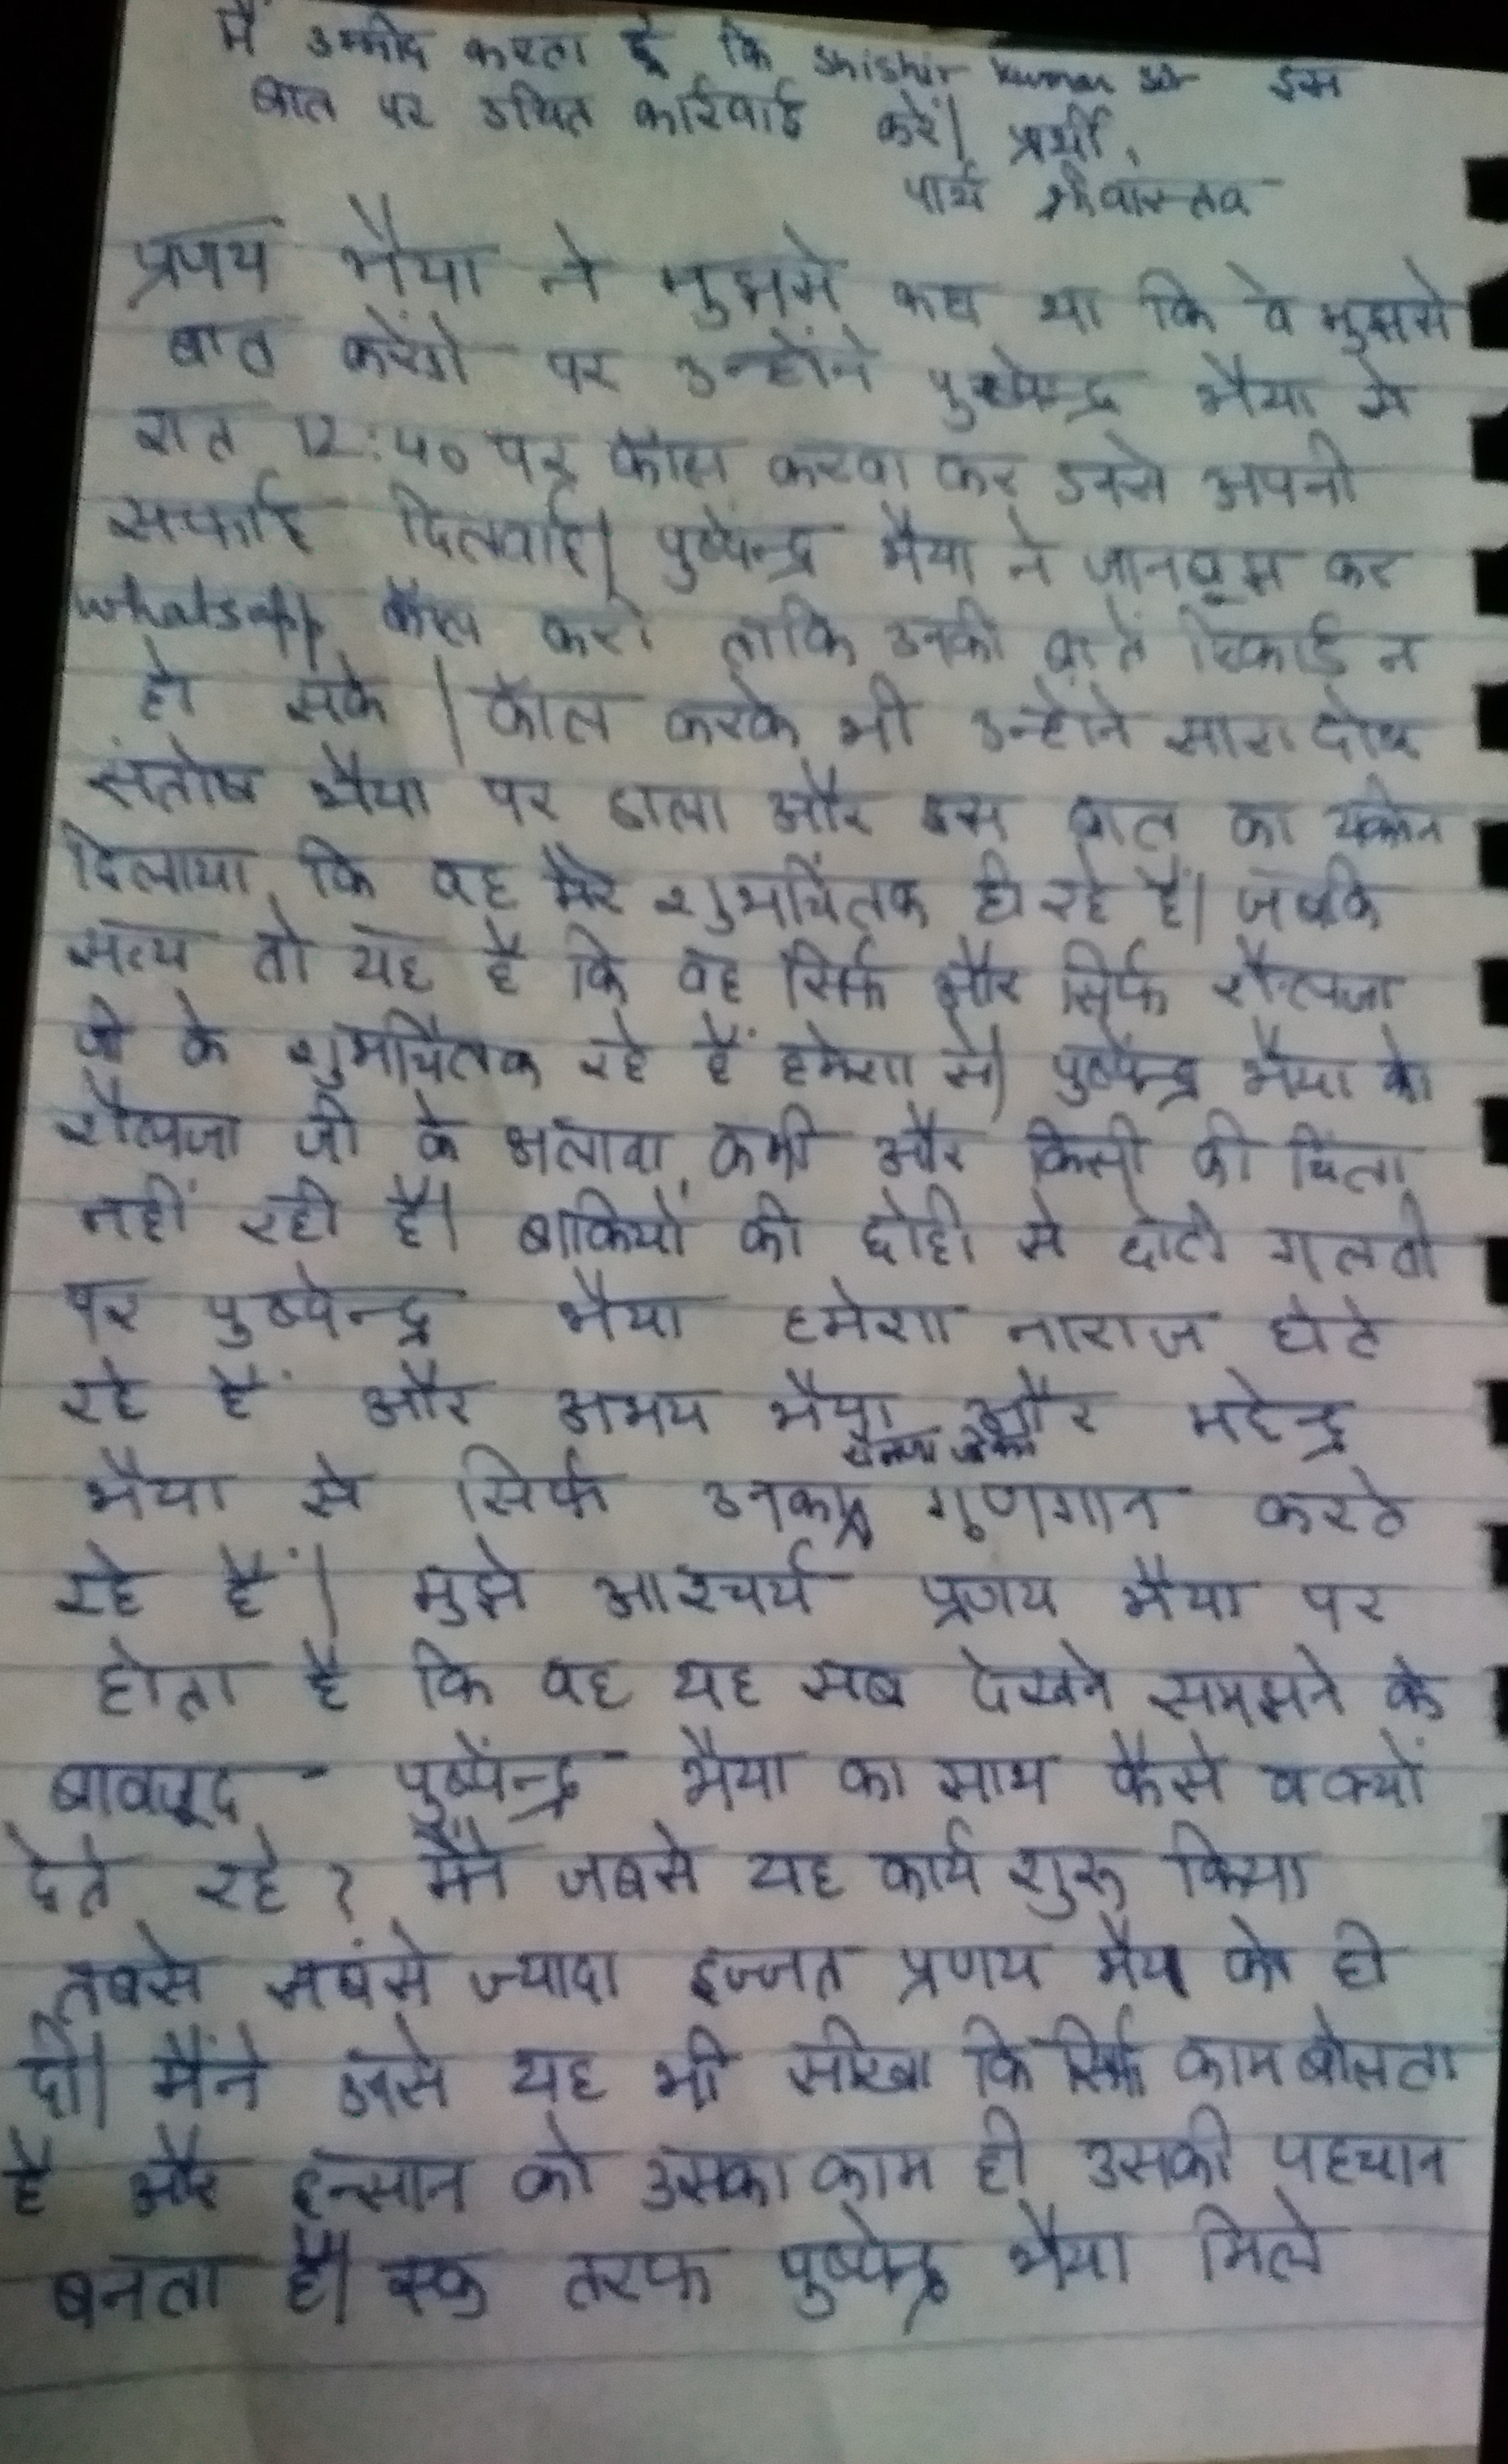 मैं उम्मीद करता हूं कि Shishir kumar sir इस
बात पर उचित कार्रवाई करें। प्रार्थी,
पार्थ श्रीवास्तव
प्रणय भैया ने मुझसे कहा था कि वे मुझसे
बात करेंगे पर उन्होंने पुष्पेन्द्र भैया से
रात 12:40 पर कॉल करवा कर उनसे अपनी
सफाई दिलवाई। पुष्पेन्द्र भैया ने जानबूझ कर
whatsapp कॉल करी ताकि उनकी बातें रिकार्ड न
हो सके। कॉल करके भी उन्होंने सारा दोष
संतोष भैया पर डाला और इस बात का यकीन
दिलाया कि वह मेरे शुभचिंतक ही रहे हैं। जबकि
सत्य तो यह है कि वह सिर्फ और सिर्फ शैलजा
जी के शुभचिंतक रहे हैं हमेशा से। पुष्पेन्द्र भैया को
शैलजा जी के अलावा कभी और किसी की चिंता
नहीं रही है। बाकियों की छोटी से छोटी गलती
पर पुष्पेन्द्र भैया हमेशा नाराज होते
रहे हैं और अभय भैया और महेन्द्र
भैया से सिर्फ उनका गुणगान करते
रहे हैं। मुझे आश्चर्य प्रणय भैया पर
होता है कि वह यह सब देखने समझने के
बावजूद पुष्पेंन्द्र भैया का साथ कैसे व क्यों
देते रहे? मैंने जबसे यह कार्य शुरू किया
तबसे सबसे ज्यादा इज्जत प्रणय भैया को ही
दी। मैंने उनसे यह भी सीखा कि सिर्फ काम बोलता
है और इन्सान को उसका काम ही उसकी पहचान
बनता है। एक तरफ पुष्पेन्द्र भैया मिले